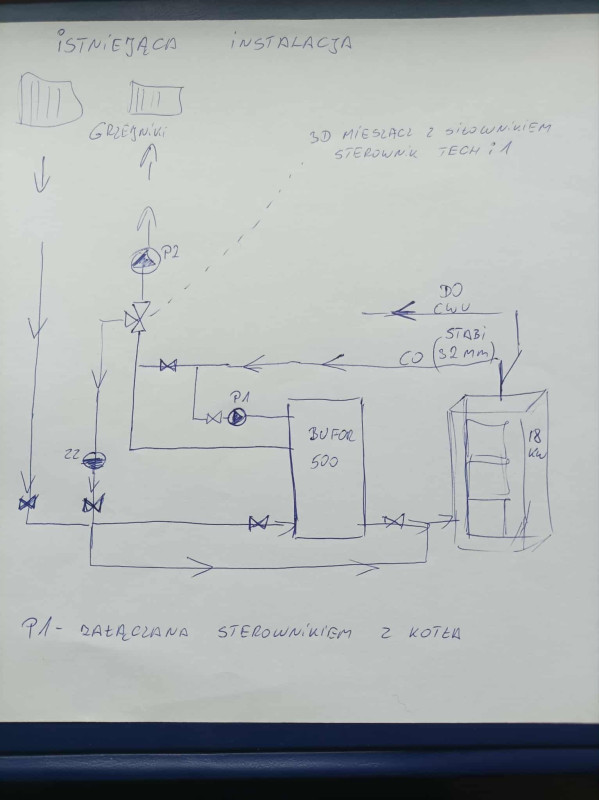 ISTNIEJĄCA INSTALACJA
GRZEJNIKI
3D MIESZACZ Z SIŁOWNIKIEM
STEROWNIK TECH i1
P2
DO
CWU
STABI
CO (32 mm)
P1
BUFOR
500
18
KW
ZZ
P1 - ZAŁĄCZANA STEROWNIKIEM Z KOTŁA